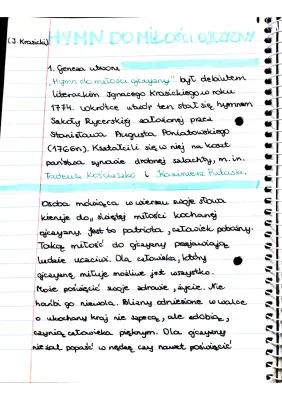 (I. Krasicki) HYMN DO MIŁOŚCI OJCZYZNY
1. Geneza utworu
„Hymn do miłości ojczyzny” był debiutem
literackim Ignacego Krasickiego w roku
1774. Wkrótce utwór ten stał się hymnem
Szkoły Rycerskiej założonej przez
Stanisława Augusta Poniatowskiego
(1766r.). Kształcili się w niej na koszt
państwa synowie drobnej szlachty, m.in.
Tadeusz Kościuszko i Kazimierz Pułaski.
Osoba mówiąca w wierszu swoje słowa
kieruje do „świętej miłości kochanej
ojczyzny. Jest to patriota, człowiek pobożny.
Taką miłość do ojczyzny przejawiają
ludzie uczciwi. Dla człowieka, który
ojczyznę miłuje możliwe jest wszystko.
Może poświęcić swoje zdrowie, życie. Nie
hańbi go niewola. Blizny odniesione w walce
o ukochany kraj nie szpecą, ale zdobią,
czynią człowieka pięknym. Dla ojczyzny
nie żal popaść w nędzę czy nawet poświęcić